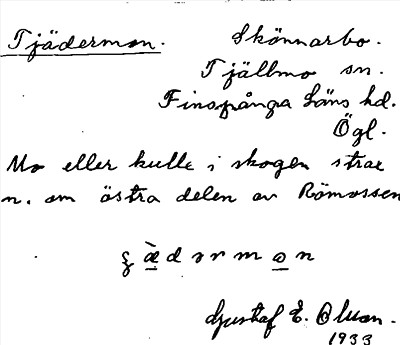 Tjädermon. Skönnarbo.
Tjällmo sn.
Finspånga läns hd.
Ögl.
Mo eller kulle i skogen strax
n. om östra delen av Römossen
Gustaf E. Olsson.
1933